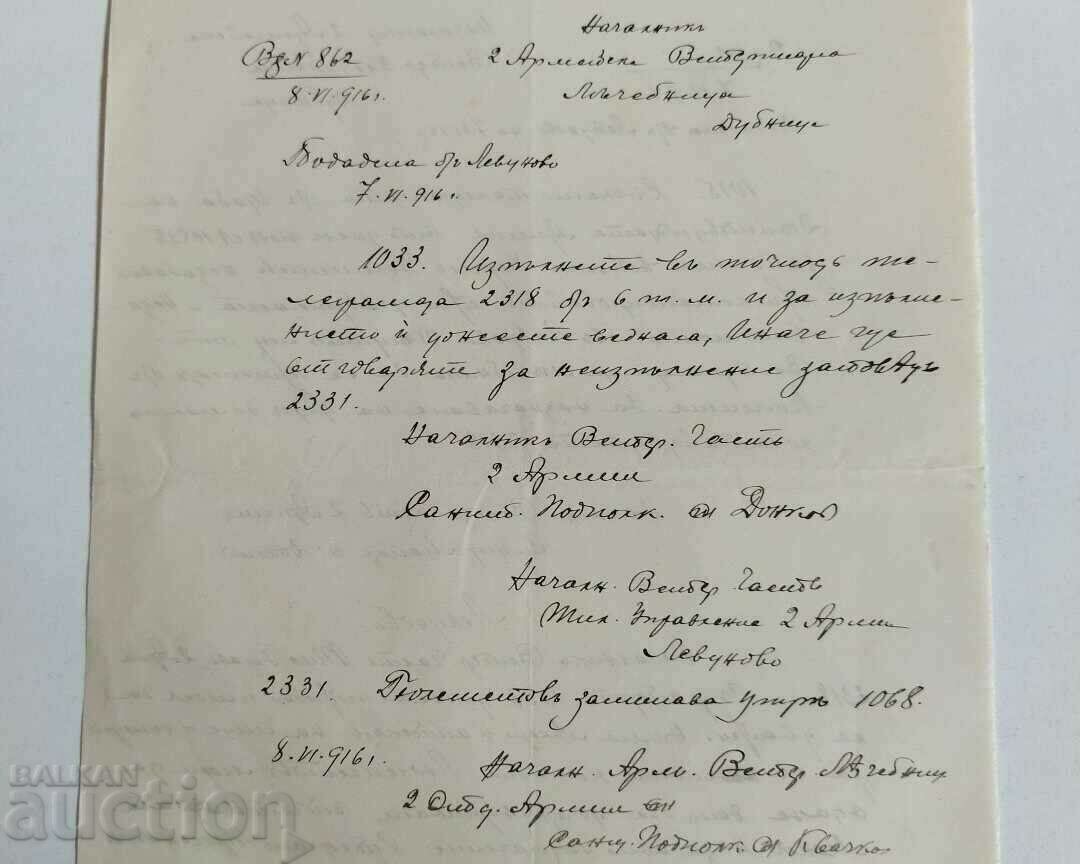 Началникъ
Вх № 862
2 Армейска Ветеринарна
8.VI.916 г.
Лѣчебница
Дубница
Подадена отъ Левуново
7.VI.916 г.
1033. Изпълнете въ точность те-
леграмата 2318 отъ 6 т.м. и за изпълне-
нието ѝ донесете веднага, Иначе ще
отговаряте за неизпълнение заповѣдь
2331.
Началникъ Ветер. Часть
2 Армия
Санит. Подполк. Донков
Началн. Ветер Часть
Тил. Управление 2 Армия
Левуново
2331. заминава утрѣ 1068.
8.VI.916 г.
Началн. Арм. Ветер. Лѣчебниц
2 Отд. Армия
Сани. Подполк. Квачков
BALKAN
auction